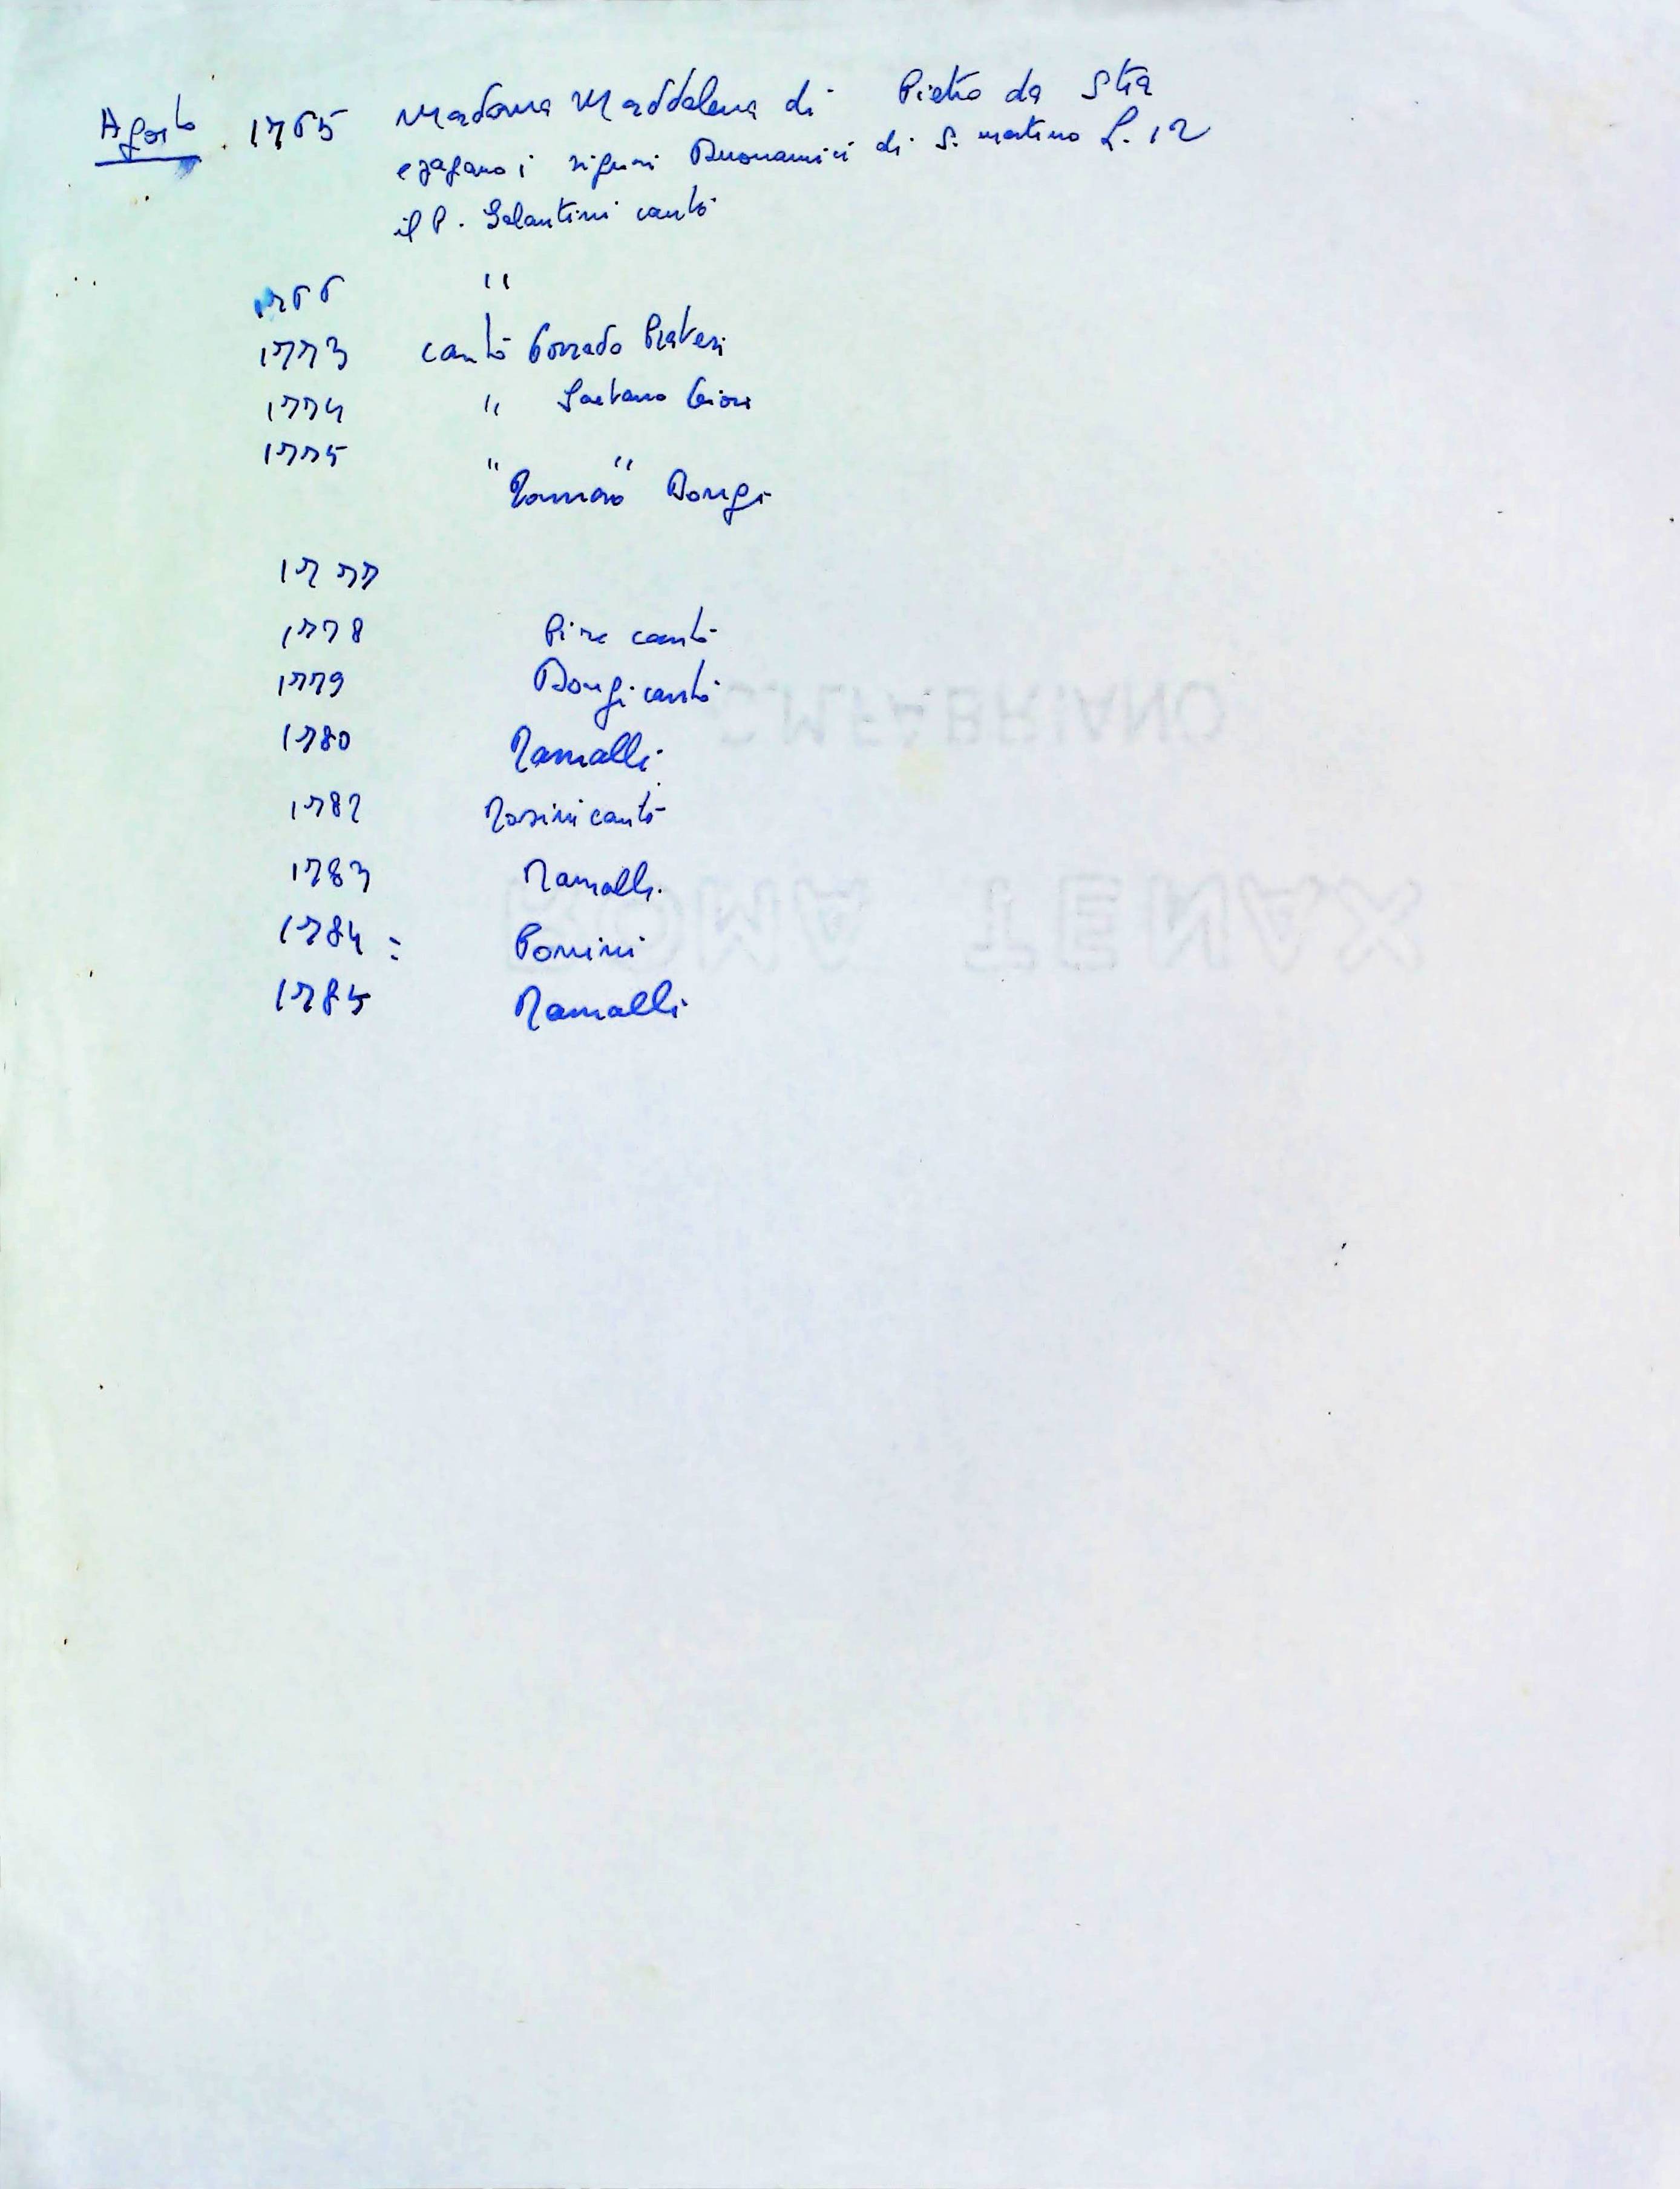 Agosto 1765 Madonna Maddalena di Pietro da Stia
e pagano i signori Buonamici di S. Martino L. 12
il P. Galantini cantò
1766 "
1773 cantò Corrado Pratesi
1774 " Gaetano
1775 " "
Bongi
1777
1778 cantò
1779 Bongi cantò
1780 Ramalli
1782 Rosini cantò
1783 Ramalli
1784 :
1785 Ramalli
C.M.FABRIANO
ROMA TENAX